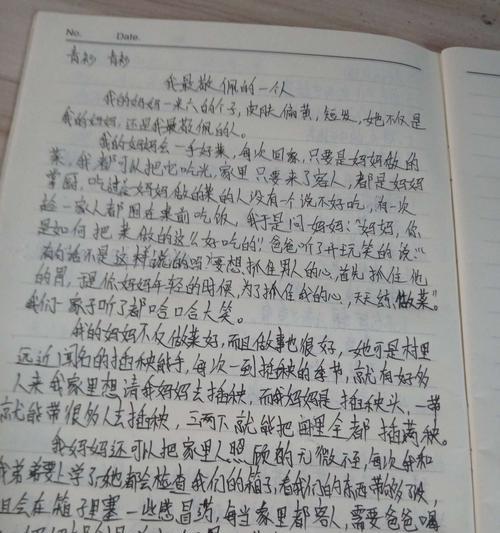 No. Date.
青秒 青秒
我最敬佩的一个人
我的妈妈一米六的个子，皮肤偏黄，短发，她不仅是
我的妈妈，还是我最敬佩的人。
我的妈妈会一手好菜，每次回家，只要是妈妈做的
菜，我都可以把它吃光，家里只要来了客人，都是妈妈
掌厨，吃过妈妈做的菜的人没有一个说不好吃，有一次
一家人都围在桌前吃饭，我于是问妈妈："妈妈，你
是如何把菜做的这么好吃的！"爸爸听了开玩笑的说："
有句话不是这样说的吗？要想抓住男人的心，首先抓住他
的胃，于是你妈妈年轻的时候，为了抓住我的心，天天练做菜。"
我们一家子听了都哈哈大笑。
我的妈妈不仅做菜好，而且做事也很好，她可是村里
远近闻名的插秧能手，每次一到插秧的季节，就有好多
人来我家里想请我妈妈去插秧，而我妈妈是插秧头，一带
就能带很多人去插秧，三两下就能把田里全都插满秧。
我妈妈还可以把家里人照顾的无微不至，每次我和
我弟弟要上学了，她都会检查我们的箱子，看我们的东西带够了没，
且会在箱子里塞一些感冒药，每当家里都客人，需要爸爸喝